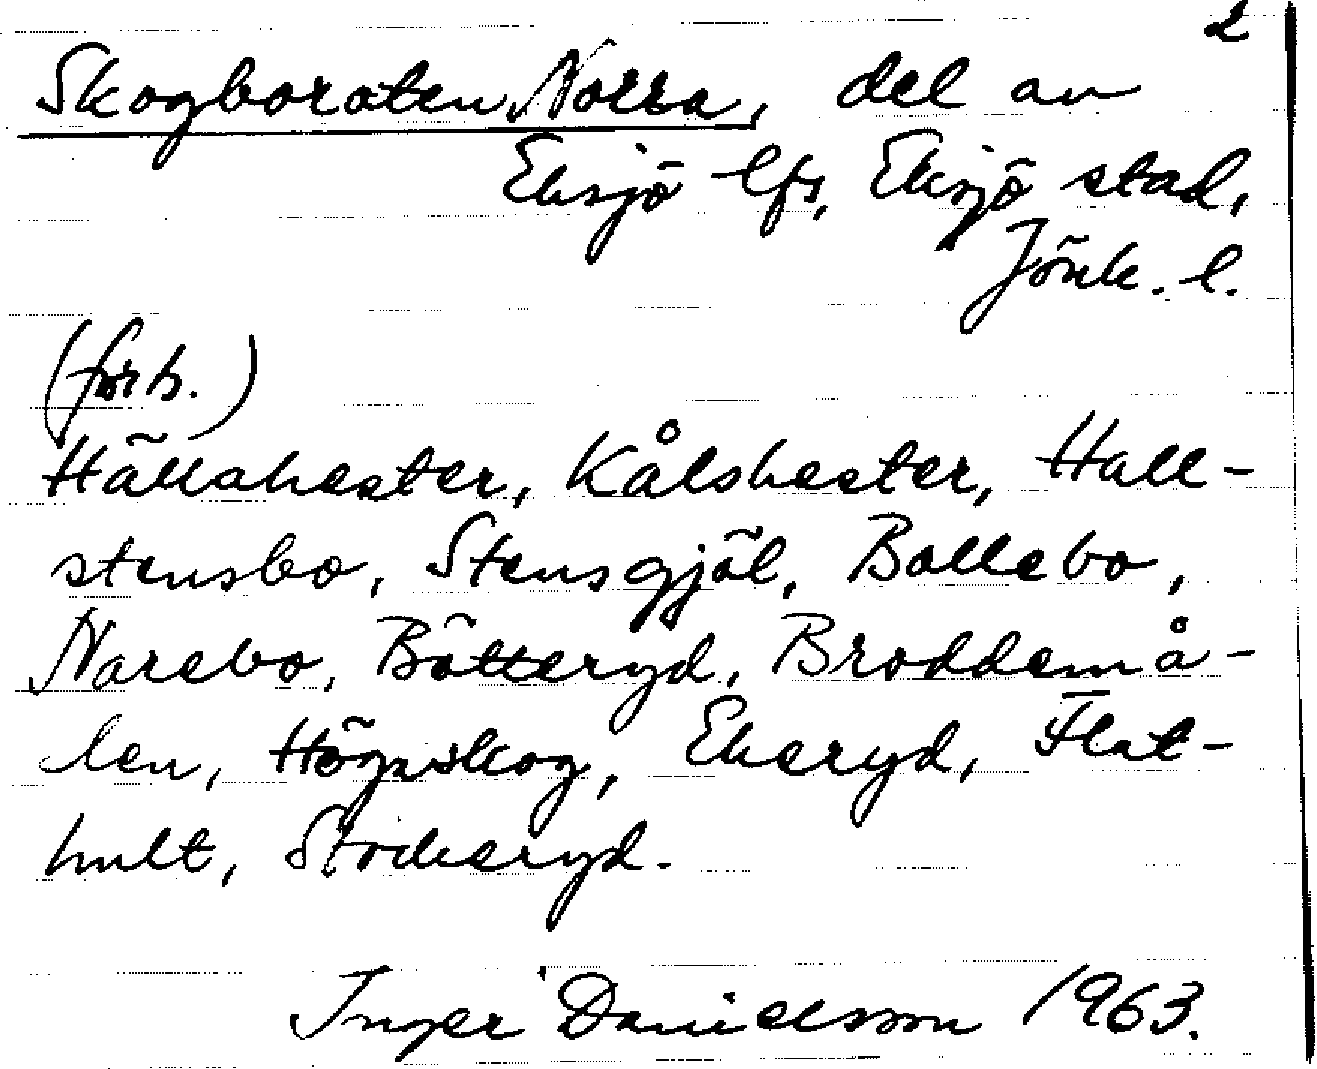 2
Skogboroten Norra, del av
Eksjö lfs, Eksjö stad,
Jönk. l.
(forts.)
Hällahester, Kålshester, Hall-
stensbo, Stensgjöl, Bollebo,
Narebo, Bötteryd, Broddemå-
len, Högaskog, Ekeryd, Flat-
hult, Stockeryd.
Inger Danielsson 1963.